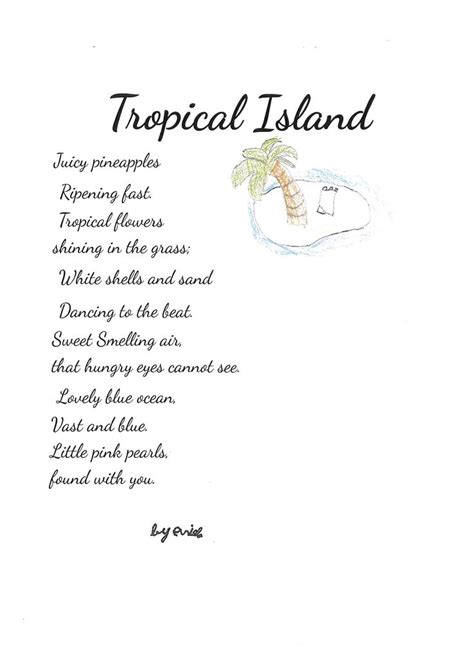 Tropical Island
Juicy pineapples
Ripening fast.
Tropical flowers
shining in the grass;
White shells and sand
Dancing to the beat.
Sweet Smelling air,
that hungry eyes cannot see.
Lovely blue ocean,
Vast and blue.
Little pink pearls,
found with you.
by